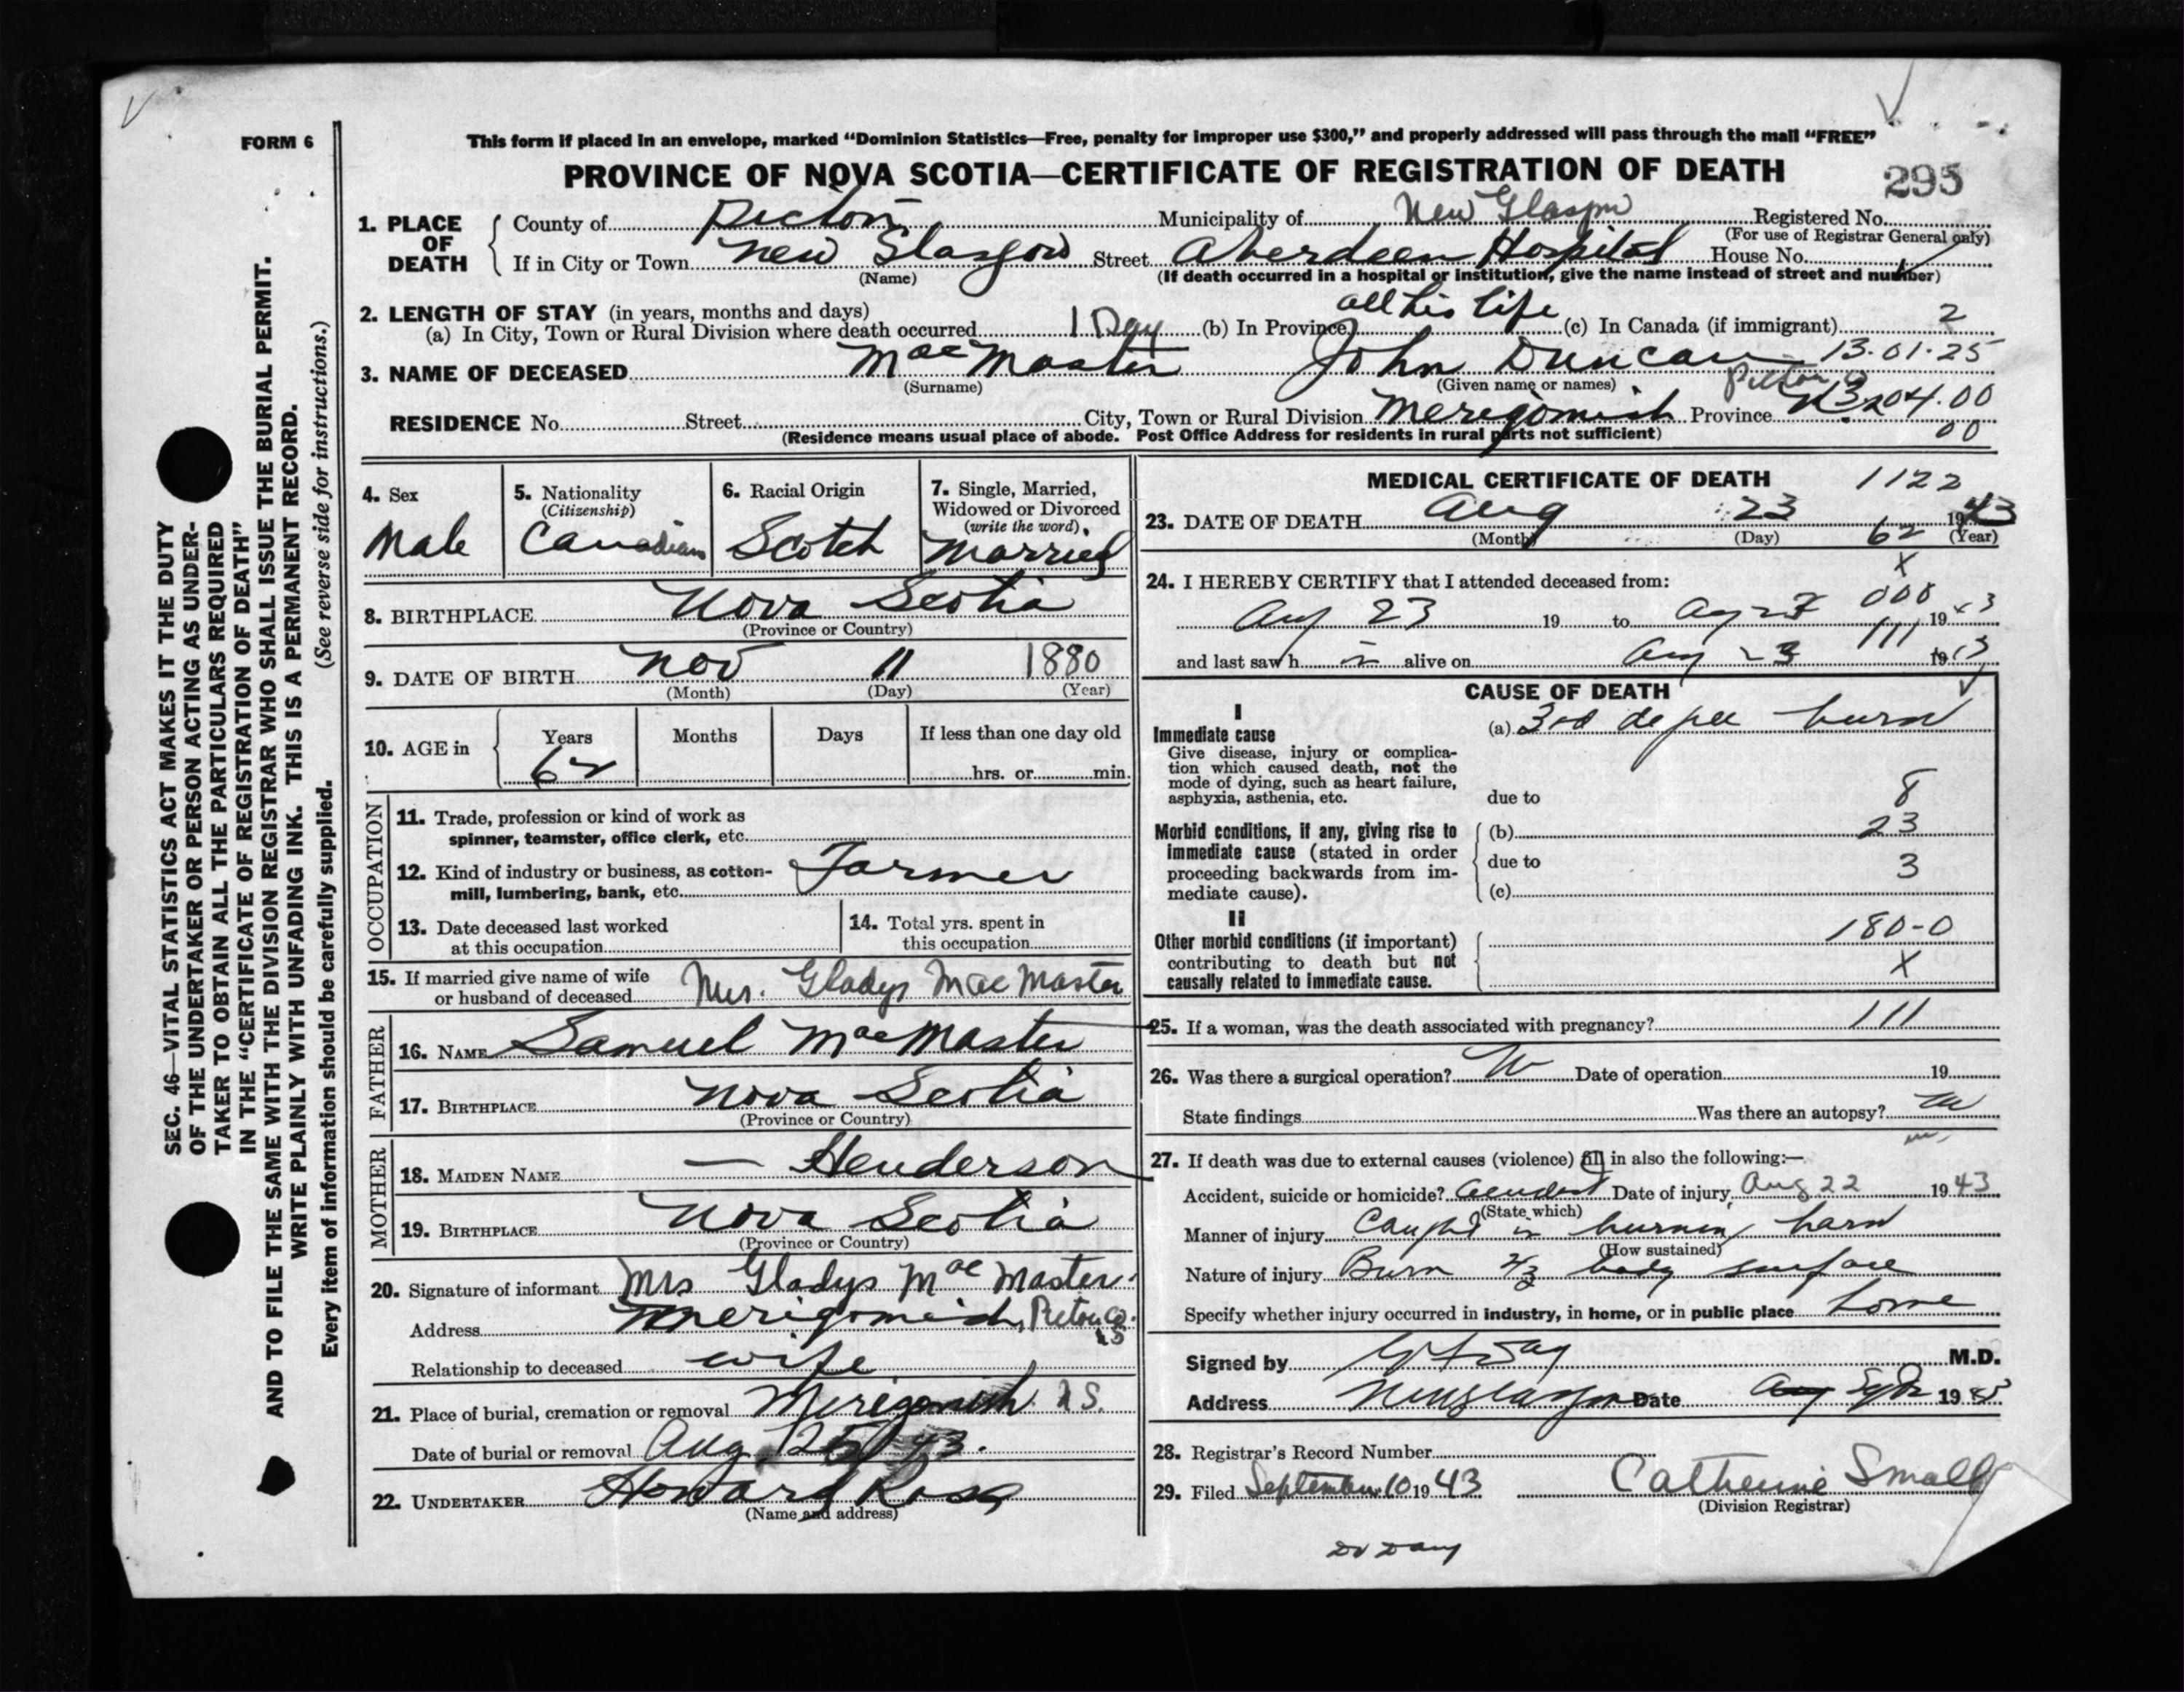 FORM 6
This form if placed in an envelope, marked "Dominion Statistics—Free, penalty for improper use $300," and properly addressed will pass through the mail "FREE"
PROVINCE OF NOVA SCOTIA—CERTIFICATE OF REGISTRATION OF DEATH
295
SEC. 46—VITAL STATISTICS ACT MAKES IT THE DUTY
OF THE UNDERTAKER OR PERSON ACTING AS UNDER-
TAKER TO OBTAIN ALL THE PARTICULARS REQUIRED
IN THE "CERTIFICATE OF REGISTRATION OF DEATH"
AND TO FILE THE SAME WITH THE DIVISION REGISTRAR WHO SHALL ISSUE THE BURIAL PERMIT.
WRITE PLAINLY WITH UNFADING INK. THIS IS A PERMANENT RECORD.
Every item of information should be carefully supplied. (See reverse side for instructions.)
1. PLACE OF DEATH County of Pictou Municipality of New Glasgow Registered No.
(For use of Registrar General only)
If in City or Town New Glasgow Street Aberdeen Hospital House No.
(Name) (If death occurred in a hospital or institution, give the name instead of street and number)
2. LENGTH OF STAY (in years, months and days)
(a) In City, Town or Rural Division where death occurred 1 Day (b) In Province all his life (c) In Canada (if immigrant) 2
3. NAME OF DECEASED MacMaster John Duncan 13-01-25
(Surname) (Given name or names)
RESIDENCE No. Street City, Town or Rural Division Merigomish Province 04.00
(Residence means usual place of abode. Post Office Address for residents in rural parts not sufficient) 00
4. Sex
Male
5. Nationality
(Citizenship)
Canadian
6. Racial Origin
Scotch
7. Single, Married,
Widowed or Divorced
(write the word)
Married
8. BIRTHPLACE Nova Scotia
(Province or Country)
9. DATE OF BIRTH Nov 11 1880
(Month) (Day) (Year)
10. AGE in Years Months Days If less than one day old
62 hrs. or min.
OCCUPATION
11. Trade, profession or kind of work as
spinner, teamster, office clerk, etc.
12. Kind of industry or business, as cotton-
mill, lumbering, bank, etc. Farmer
13. Date deceased last worked
at this occupation
14. Total yrs. spent in
this occupation
15. If married give name of wife
or husband of deceased Mrs. Gladys MacMaster
FATHER
16. NAME Samuel MacMaster
17. BIRTHPLACE Nova Scotia
(Province or Country)
MOTHER
18. MAIDEN NAME — Henderson
19. BIRTHPLACE Nova Scotia
(Province or Country)
20. Signature of informant Mrs Gladys MacMaster
Address Merigomish, Pictou Co. NS
Relationship to deceased wife
21. Place of burial, cremation or removal Merigomish N S.
Date of burial or removal Aug 25 / 43.
22. UNDERTAKER Howard Ross
(Name and address)
MEDICAL CERTIFICATE OF DEATH 1122
23. DATE OF DEATH Aug 23 1943
(Month) (Day) 62 (Year)
X
24. I HEREBY CERTIFY that I attended deceased from:
Aug 23 19 to Aug 23 000 1943
and last saw h im alive on Aug 23 111 1943
CAUSE OF DEATH
I
Immediate cause (a) 3rd degree burn
Give disease, injury or complica-
tion which caused death, not the
mode of dying, such as heart failure,
asphyxia, asthenia, etc. due to 8
Morbid conditions, if any, giving rise to (b) 23
immediate cause (stated in order due to 3
proceeding backwards from im-
mediate cause). (c)
II
Other morbid conditions (if important) 180-0
contributing to death but not X
causally related to immediate cause.
25. If a woman, was the death associated with pregnancy? 111
26. Was there a surgical operation? No Date of operation 19
State findings Was there an autopsy? no
27. If death was due to external causes (violence) fill in also the following:—
Accident, suicide or homicide? Accident Date of injury Aug 22 1943
(State which)
Manner of injury Caught in burning barn
(How sustained)
Nature of injury Burn 2/3 body surface
Specify whether injury occurred in industry, in home, or in public place home
Signed by Day M.D.
Address New Glasgow Date Aug Sept 1943
28. Registrar's Record Number
29. Filed September 10 1943 Catherine Small
(Division Registrar)
Dr Day